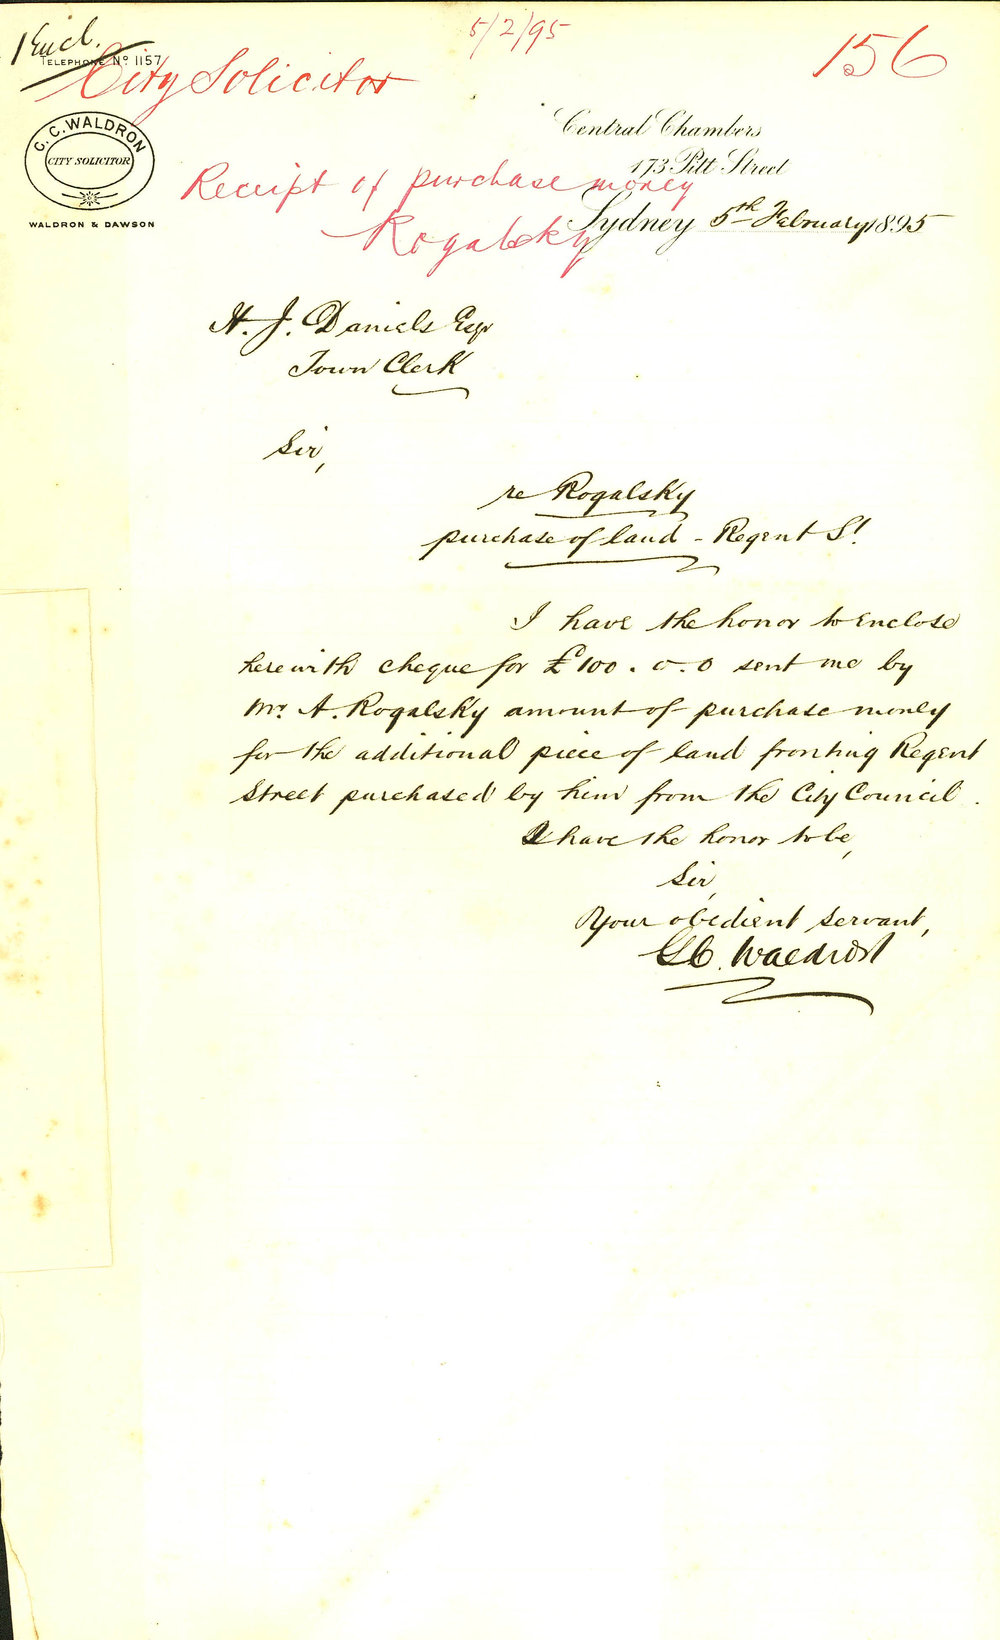 5/2/95
1 Encl.
156
TELEPHONE No 1157
City Solicitor
G. C. WALDRON
CITY SOLICITOR
WALDRON & DAWSON
Central Chambers
173 Pitt Street
Receipt of purchase money
Rogalsky
Sydney 5th February 1895
H. J. Daniels Esqr
Town Clerk
Sir,
re Rogalsky
purchase of land - Regent St.
I have the honor to enclose
herewith cheque for £100.0.0 sent me by
Mr. A. Rogalsky amount of purchase money
for the additional piece of land fronting Regent
Street purchased by him from the City Council.
I have the honor to be,
Sir,
Your obedient servant,
G C. Waldron